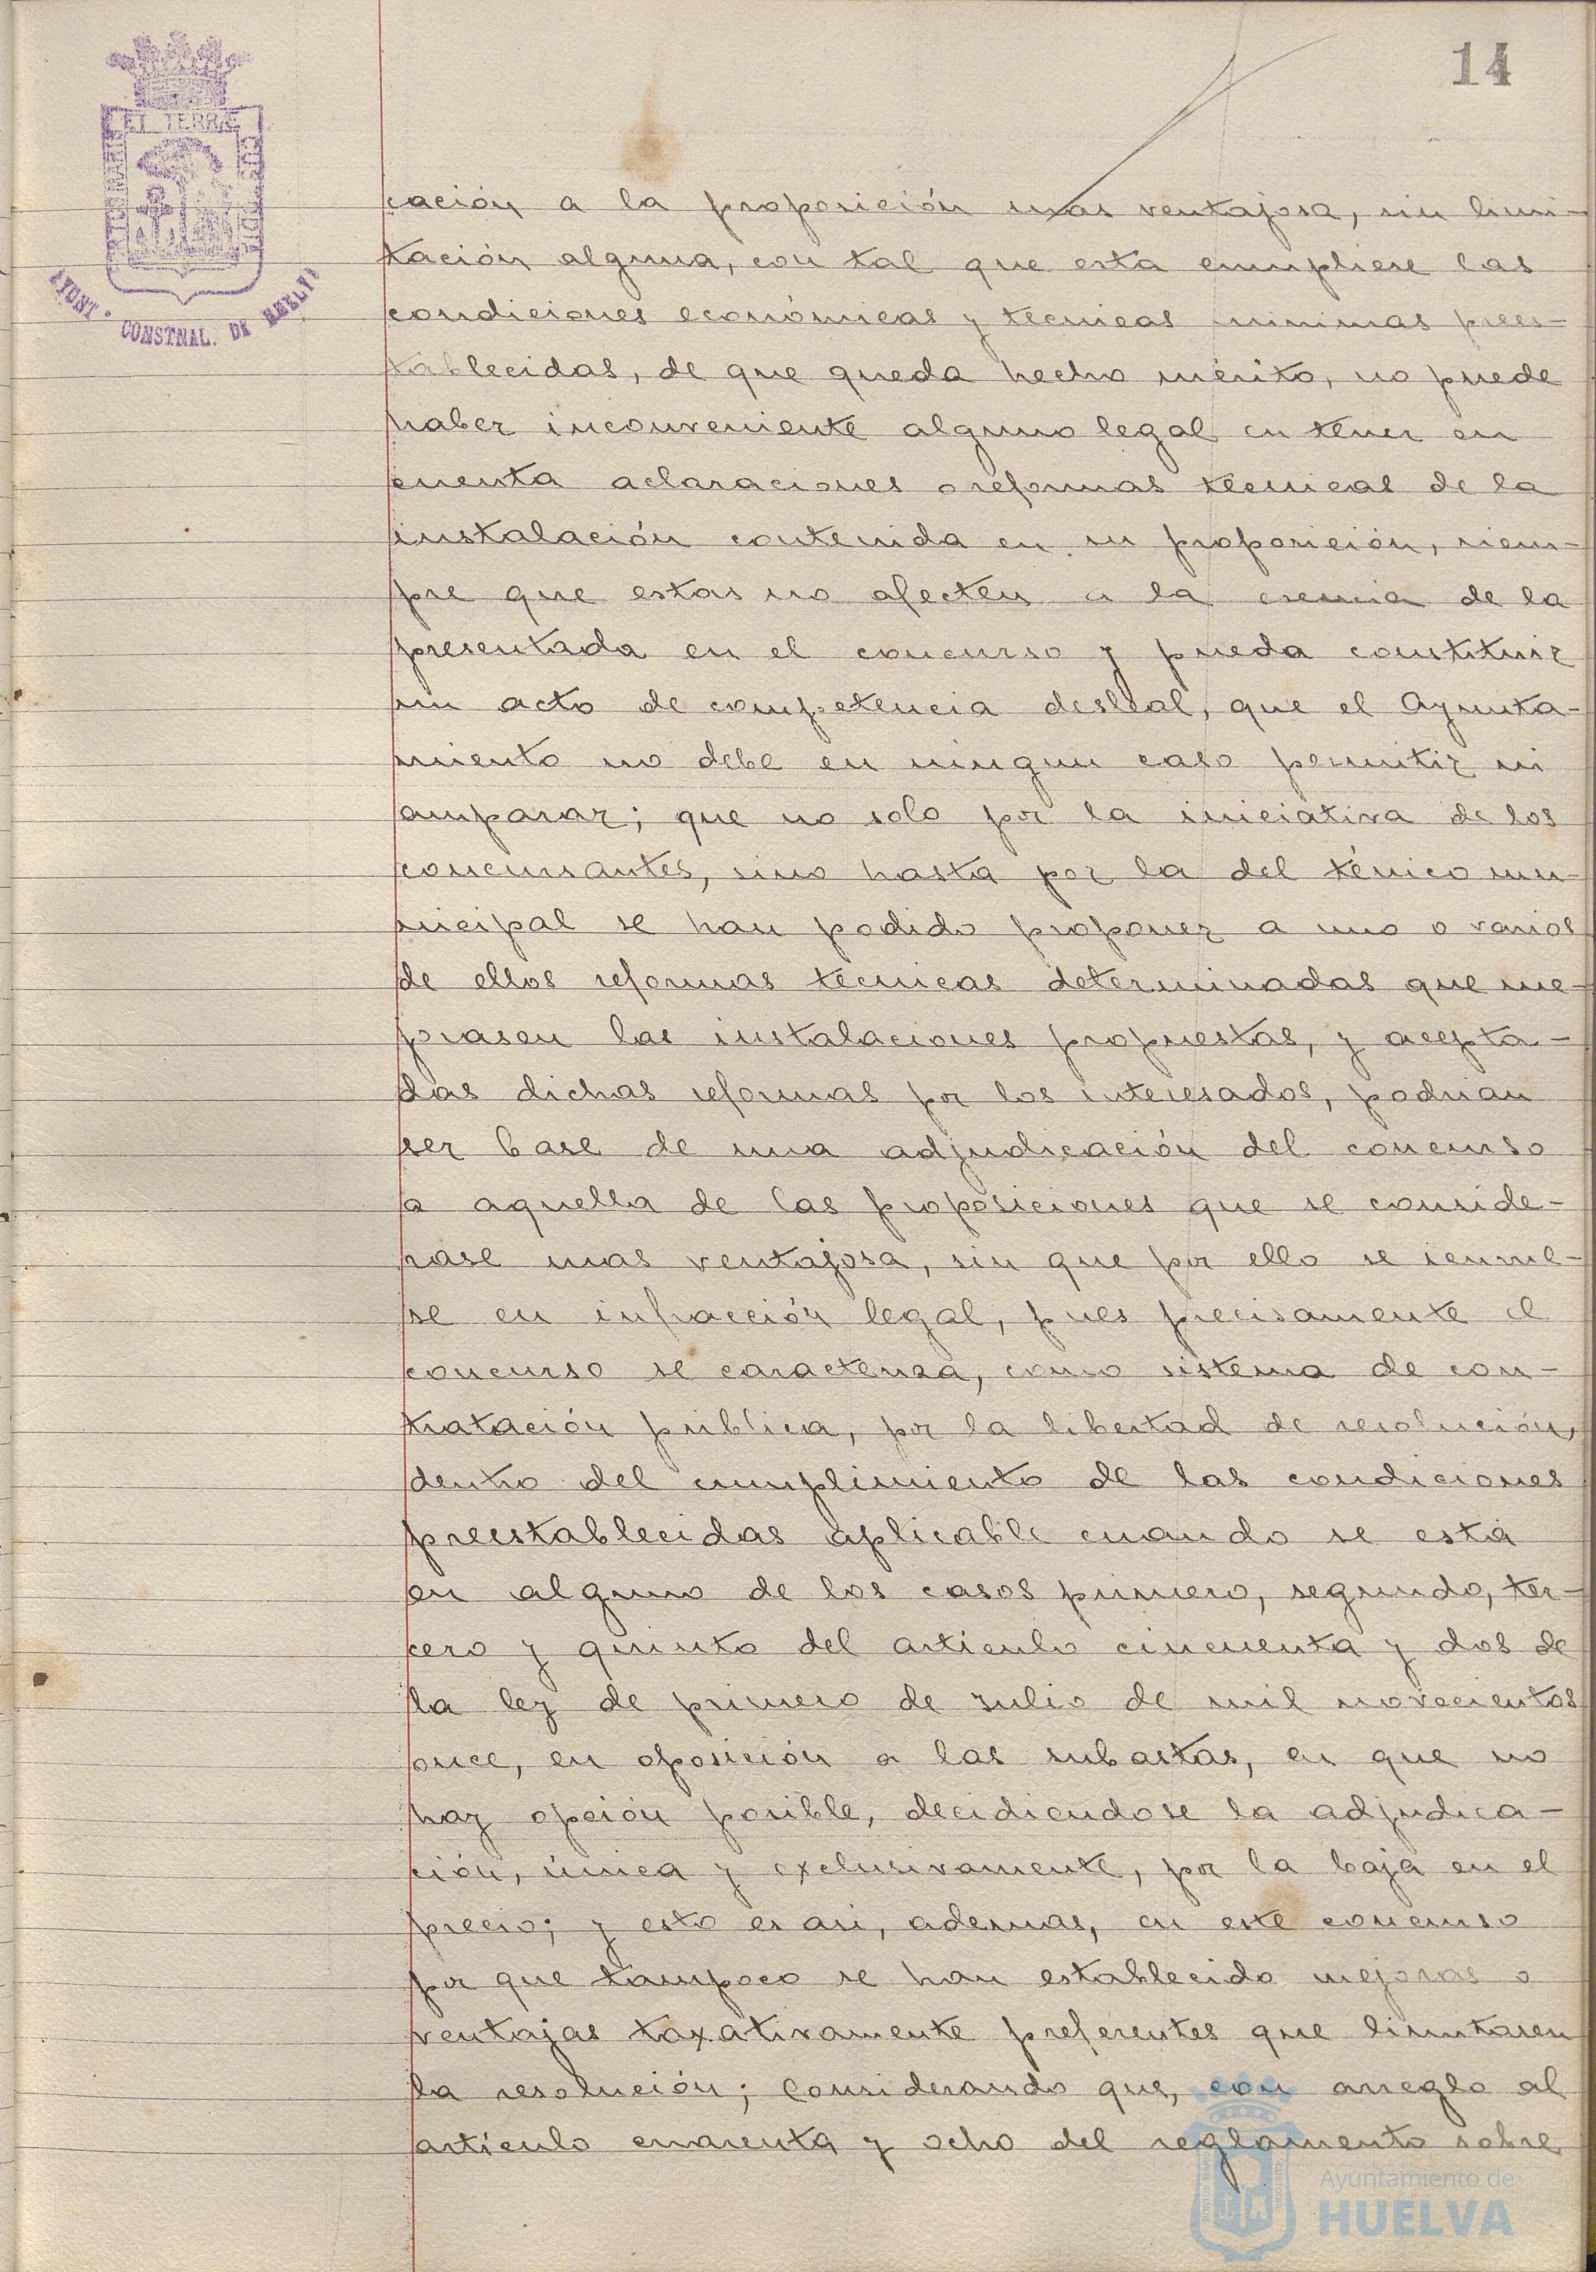 14
EL TERRÆ
AYUNT. CONSTNAL. DE HUELVA
cación a la proposición mas ventajosa, sin limi-
tación alguna, con tal que esta cumpliese las
condiciones económicas y técnicas minimas prees-
tablecidas, de que queda hecho mérito, no puede
haber inconveniente alguno legal en tener en
cuenta aclaraciones o reformas tecnicas de la
instalación contenida en su proposición, siem-
pre que estas no afecten a la esencia de la
presentada en el concurso y pueda constituir
un acto de competencia desleal, que el Ayunta-
miento no debe en ningun caso permitir ni
amparar; que no solo por la iniciativa de los
concursantes, sino hasta por la del ténico mu-
nicipal se han podido proponer a uno o varios
de ellos reformas tecnicas determinadas que me-
jorasen las instalaciones propuestas, y acepta-
das dichas reformas por los interesados, podrian
ser base de una adjudicación del concurso
a aquella de las proposiciones que se conside-
rase mas ventajosa, sin que por ello se
se en infracción legal, pues precisamente el
concurso se caracteriza, como sistema de con-
tratación pública, por la libertad de resolución,
dentro del cumplimiento de las condiciones
preestablecidas aplicable cuando se está
en alguno de los casos primero, segundo, ter-
cero y quinto del articulo cincuenta y dos de
la ley de primero de Julio de mil novecientos
once, en oposición a las subastas, en que no
hay opción posible, decidiendose la adjudica-
ción, única y exclusivamente, por la baja en el
precio; y esto es asi, ademas, en este concurso
por que tampoco se han establecido mejoras o
ventajas taxativamente preferentes que limitasen
la resolución; Considerando que, con arreglo al
artículo cuarenta y ocho del reglamento sobre
Ayuntamiento de
HUELVA